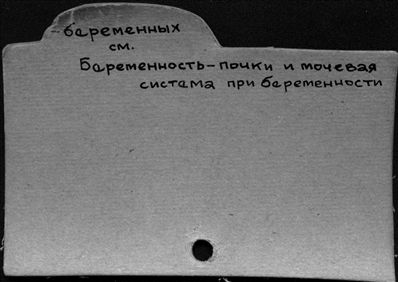 - беременных
см.
Беременность - почки и мочевая
система при беременности